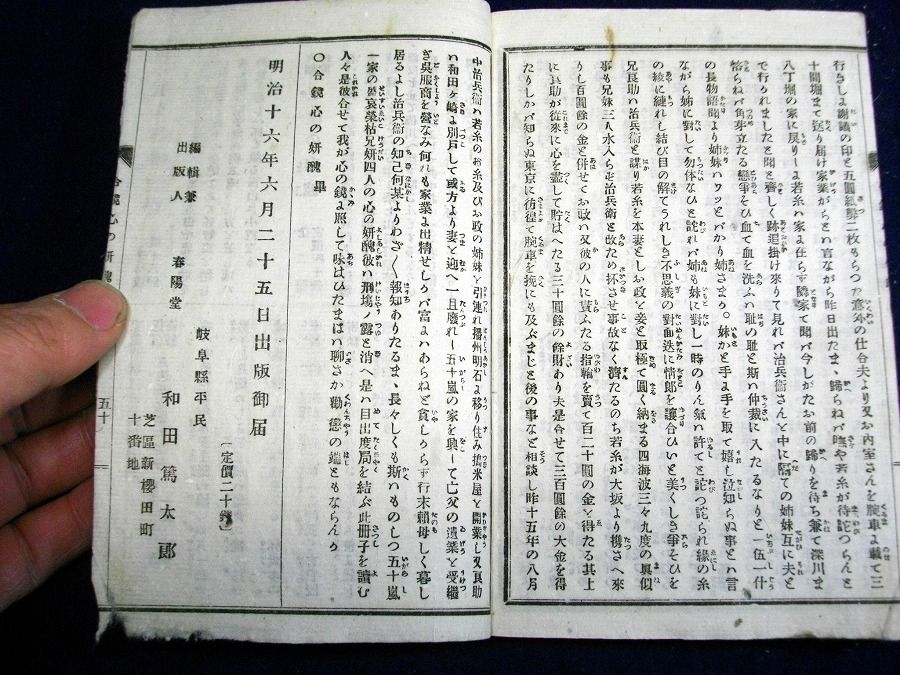 行きしよ謝議の印と五圓紙幣二枚もらつた意外の仕合夫より又お内室さんを腕車よ載て三
十間堀まで送り届け家業がらとハ言ながら昨日出たまゝ歸らねバ嘸や若糸が待詫つらんと
八丁堀の家に戻りしよ若糸ハ家よ在らず隣家て聞バ今しがたお前の歸りを待ち兼て深川ま
で行かれましたと聞と齊しく跡追掛け來りて見れバ治兵衞さんと中に隔ての姉妹互に夫と
悋らねバ角芽立たる戀爭そひ血で血を洗ふハ耻の耻と斯ハ仲裁に入たるなりと一伍一什
の長物語より姉妹ハワッとバかり姉さまか○妹かと手よ手を取て嬉し泣知らぬ事とハ言
ながら姉に對して勿体ないひと詫れバ姉も妹に對し一時のりん氣ハ許てと詑つ詑られ緣の糸
の綾に縺れし結び目の解てうれしき不思義の對面迭に情郎を讓合ひいと美くしき爭そひを
兄良助ハ治兵衞と謀り若糸を本妻としお政を妾と取極て圓く納まる四海波三々九度の眞似
事も兄妹三人水入らず治兵衞と改ため杯させ事故なく濟たるのち若糸が大坂より携さへ來
りし百圓餘の金と併せてお政ハ又彼の人に貰ふたる指輪を賣て百二十圓の金と得たる其上
に良助が從來に心を盡して貯はへたる三十圓餘の餘財あり夫是合せて三百圓餘の大金を得
たりしかバ知らぬ東京に彷徨て腕車を挽にも及ぶまじと後の事など相談し昨十五年の八月
中治兵衞ハ若糸のお糸及びお政の姉妹を引連れ播州明石よ移り住み搗米屋を開業し又良助
ハ和田ケ崎よ別戸して或方より妻と迎へ一旦廢れし五十嵐の家を興して亡父の遺業と受繼
ぎ呉服商を營なみ何れも家業よ出精せしかバ富よハあらねど貧しからず行末賴母しく暮し
居るよし治兵衞の知己何某よりわざ〱報知ありたるまゝ長々しくも斯ハものしつ五十嵐
一家の盛衰榮枯兄妍四人の心の妍醜彼ハ刑塲ノ露と消へ是ハ目出度局を結ぶ此冊子を讀む
人々是彼合せて我が心の鏡よ照して味はひたまはハ聊さか勸懲の端ともならんか
○合鏡心の妍醜畢
明治十六年六月二十五日出版御届
〔定價二十錢〕
岐阜縣平民
編輯兼
出版人 春陽堂 和田篤太郎
芝區新櫻田町
十番地
合鏡心の妍醜
五十